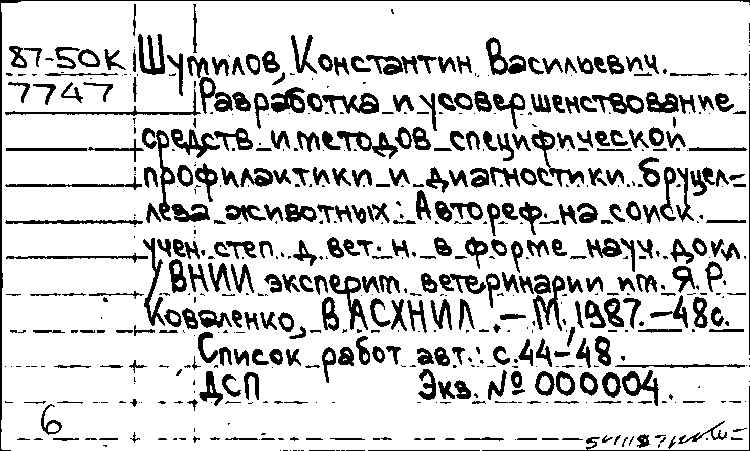 87-50К Шумилов, Константин Васильевич.
7747 Разработка и усовершенствование
средств и методов специфической
профилактики и диагностики бруцел-
леза животных: Автореф. на соиск.
учен. степ. д. вет. н. в форме науч. докл.
/ ВНИИ эксперим. ветеринарии им. Я.Р.
Коваленко, ВАСХНИЛ. – М., 1987. – 48с.
Список работ авт.: с.44-48.
ДСП Экз. № 000004.
6